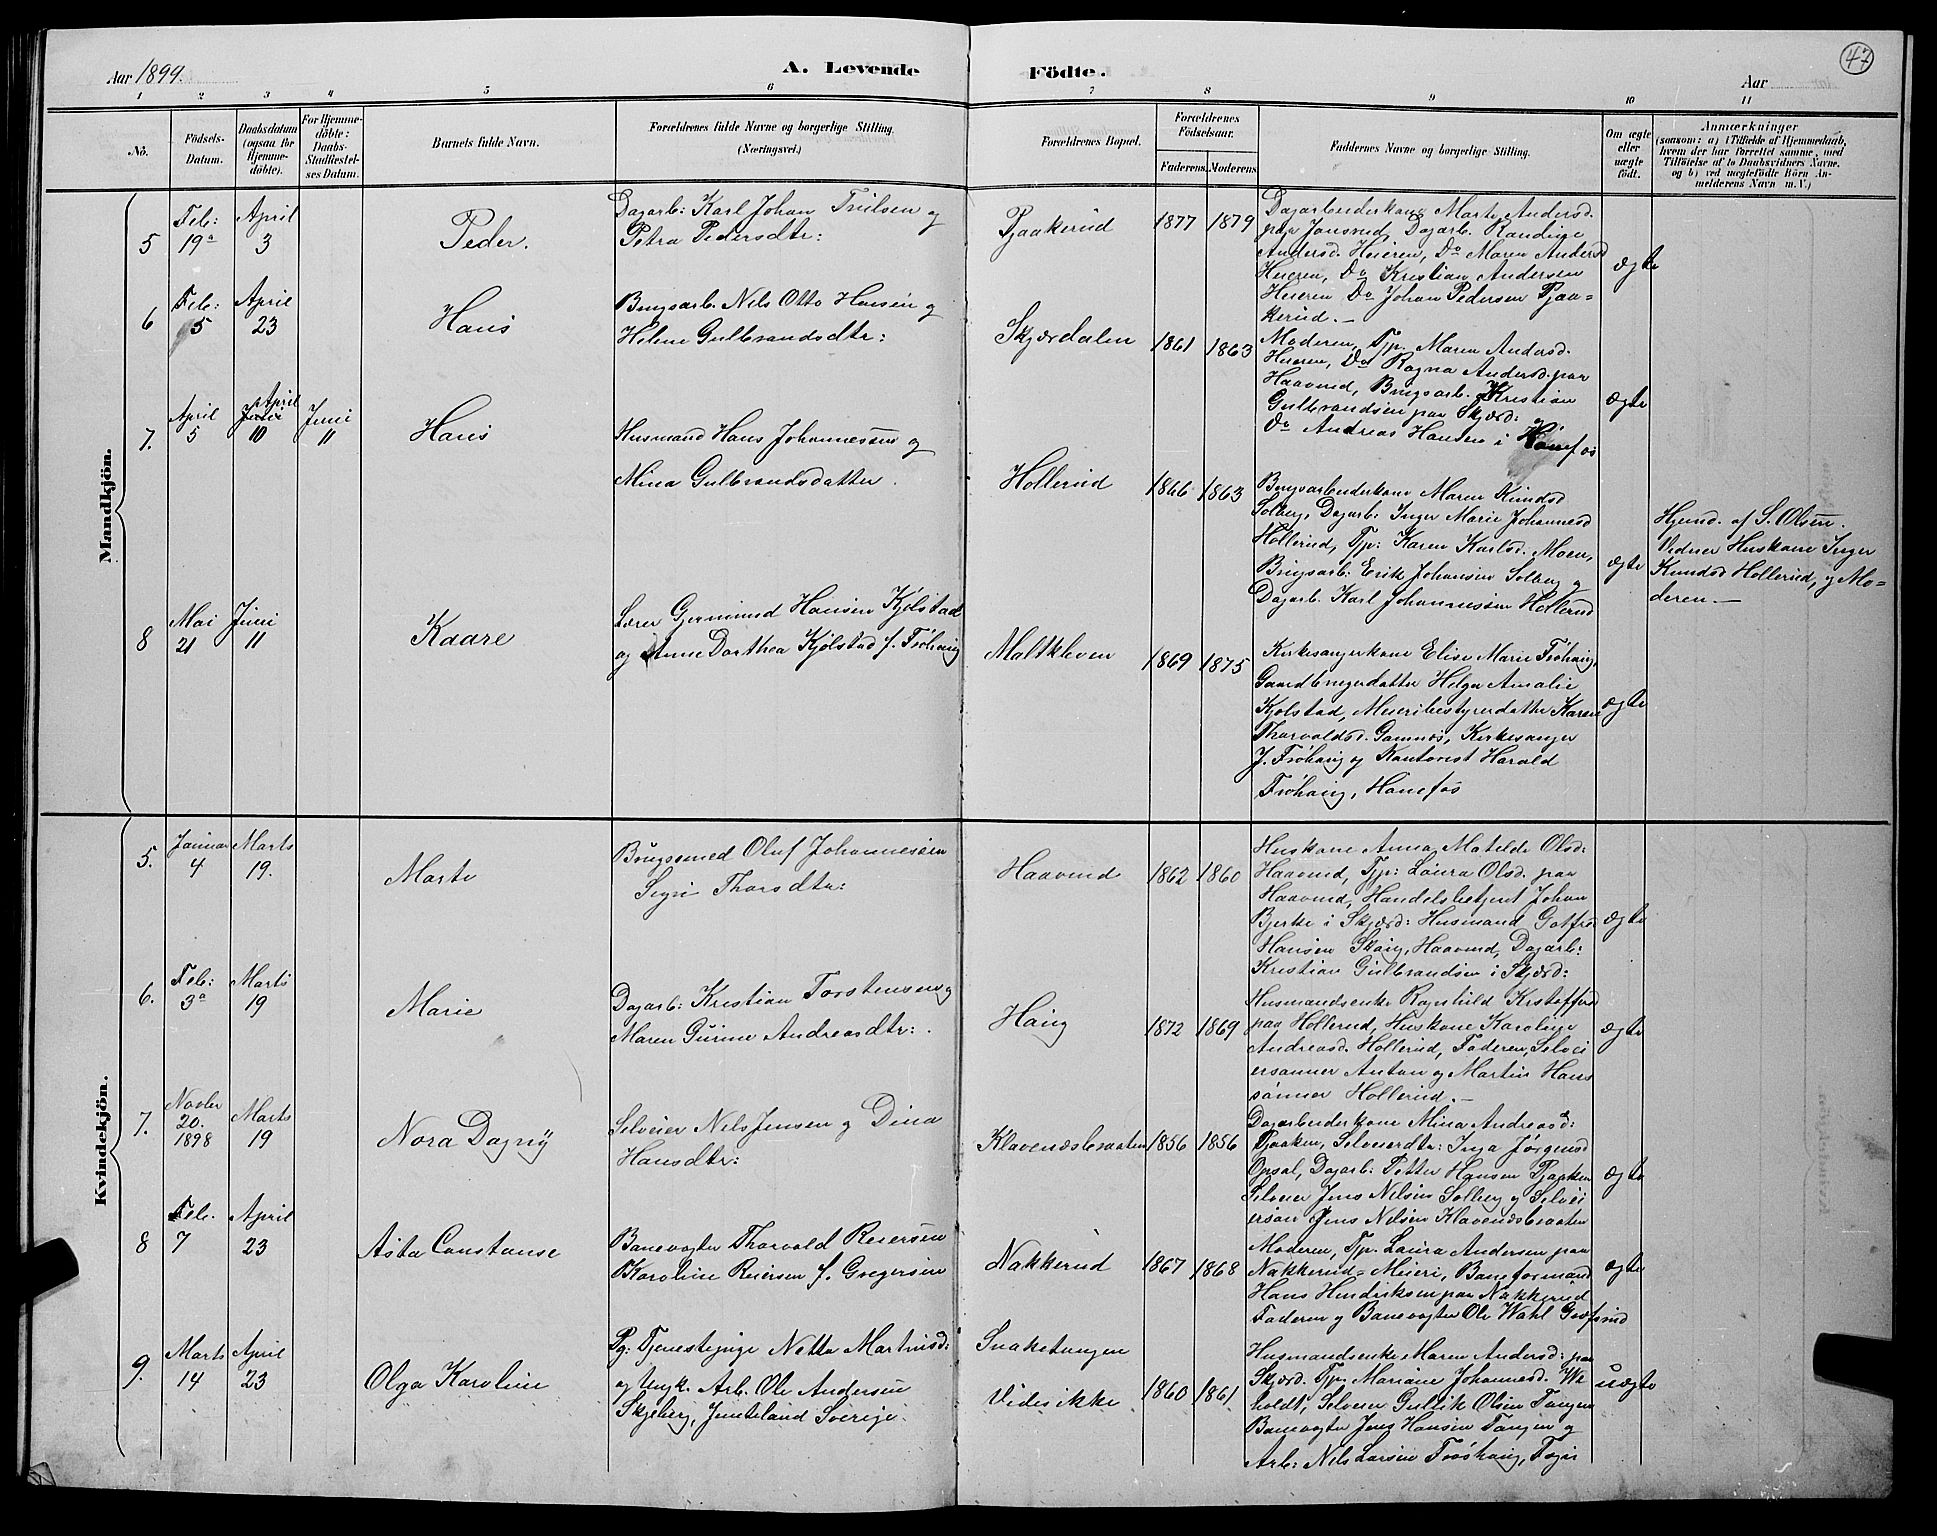 Aar 1899.
A. Levende
Födte.
Aar
47
1 2 3 4 5 6 7 8 9 10 11
No.
Födsels-
Datum.
Daabsdatum
(ogsaa for
Hjemme-
döbte).
For Hjemme-
döbte:
Daabs-
Stadfæstel-
ses Datum.
Barnets fulde Navn.
Forældrenes fulde Navne og borgerlige Stilling.
(Næringsvei.)
Forældrenes Bopæl.
Forældrenes
Födselsaar.
Faderens. Moderens
Faddernes Navne og borgerlige Stilling.
Om ægte
eller
uægte
födt.
Anmærkninger
(saasom: a) i Tilfælde af Hjemmedaab,
hvem der har forrettet samme, med
Tilföielse af to Daabsvidners Navne,
og b) ved uægtefödte Börn An-
melderens Navn m. V.)
Mandkjön.
5
Feb:
19a
April
3
Peder.
Dagarb: Karl Johan Troilsen og
Petra Pedersdtr:
Pjaakerud
1877 1879
Dagarbeiderkone Marte Andersd.
paa Jonsrud, Dagarb. Randine
Andersd. Heieren, Do Maren Andersd
Heieren, Do Kristian Andersen
Heieren Do Johan Pedersen Pjaa=
kerud.
ægte
6
Feb:
5
April
23
Hans
Brugsarb. Nils Otto Hansen og
Helene Gulbrandsdtr:
Skjærdalen
1861 1863
Moderen, Tjp. Maren Andersd.
Heieren, Do Ragna Andersd. paa
Haavrud, Brugsarb. Kristian
Gulbrandsen paa Skjærd:
Do Andreas Hansen i Hønefos
ægte
7.
April
5
April
10
Juni
11
Hans
Husmand Hans Johannessen og
Mina Gulbrandsdatter.
Hollerud
1866 1863
Brugsarbeiderkone Maren Knudsd
Solberg, Dagarb: Inger Marie Johannesd
Hollerud, Tjp: Karen Karlsd. Moen,
Brugsarb: Erik Johansen Solberg og
Dagarb. Karl Johannessen Hollerud
ægte
Hjemd. af S. Olsen.
Vidner Huskone Inger
Knudsd Hollerud, og Mo=
deren.
8
Mai
21
Juni
11
Kaare
Lærer Gjermund Hansen Kjølstad
og Anne Dorthea Kjølstad f. Frøhaug
Maltkleven
1869 1875
Kirkesangerkone Elise Marie Frøhaug,
Gaardbrugerdatter Helga Amalie
Kjølstad, Meieribestyrerdatter Karen
Thorvaldsd. Gamnæs, Kirkesanger
J. Frøhaug og Kontorist Harald
Frøhaug, Hønefos
ægte
Kvindekjön.
5.
Januar
4
Marts
19.
Marte
Brugssmed Oluf Johannessen
Sigri Thorsdtr:
Haavrud
1862 1860
Huskone Anna Matilde Olsd:
Haavrud, Tjp: Laura Olsd. paa
Haavrud, Handelsbetjent Johan
Bjerke i Skjærd: Husmand Gotfred
Hansen Skaug, Haavrud, Dagarb:
Kristian Gulbrandsen i Skjærd:
ægte
6.
Feb:
3a
Marts
19
Marie
Dagarb: Kristian Torstensen og
Maren Gurine Andreasdtr:
Haug
1872 1869
Husmandsenke Ragnhild Kristoffersd
paa Hollerud, Huskone Karoline
Andreasd. Hollerud, Faderen, Selvei
ersønner Anton og Martin Hans
sønner Hollerud.
ægte
7.
Novbr
20.
1898
Marts
19
Nora Dagny
Selveier Nils Jensen og Dina
Hansdtr:
Klavenæsbraaten
1856 1856
Dagarbeiderkone Mina Andreasd:
Pjaaken, Selveierdtr: Inga Jørgensd
Opsal, Dagarb: Petter Hansen Pjaaken
Selveier Jens Nilsen Solberg og Selvei
ersøn Jens Nilsen Klavenæsbraaten
ægte
8
Feb.
7
April
23
Asta Constanse
Banevogter Thorvald Reiersen
Karoline Reiersen f. Gregersen
Nakkerud
1867 1868
Moderen, Tjp. Laura Andersen paa
Nakkerud=Meieri, Baneformand
Hans Hendriksen paa Nakkerud
Faderen og Banevogter Ole Wahl Græfsrud
ægte
9.
Marts
14
April
23
Olga Karoline
Pg: Tjenestepige Netta Martinsd:
og Ungk. Arb. Ole Andersen
Skjeberg, Jemteland Sverige.
Snaketangen
Vides ikke
1860 1861
Husmandsenke Maren Andersd: paa
Skjærd. Tjp. Mariane Johannesd. We
holdt, Selveier Gulik Olsen Tangen
Banevogter Jens Hansen Tangen og
Arb: Nils Larsen Frøshaug, Tegn
uægte